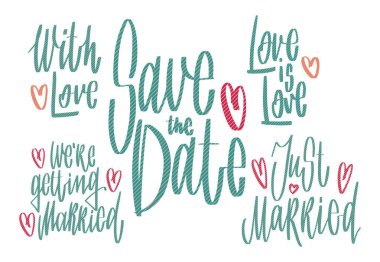 With
Love
Save
the
Date
Love
is
Love
We're
getting
Married
Just
Married